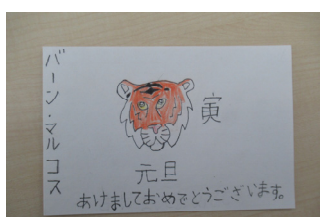 バーン・マルコス
寅
元旦
あけましておめでとうございます。